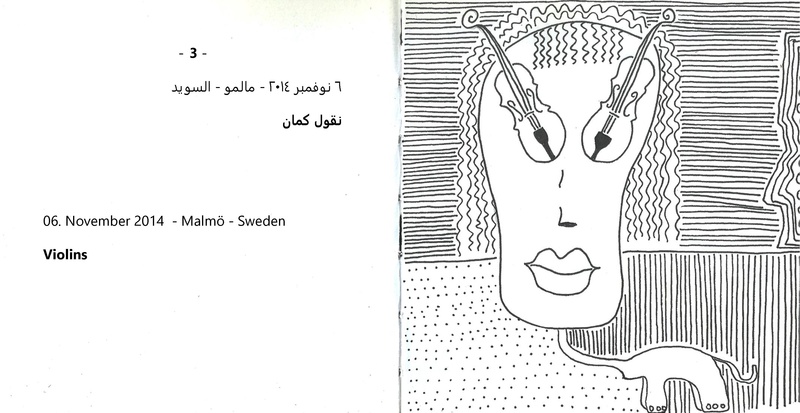 - 3 -
٦ نوفمبر ٢٠١٤ - مالمو - السويد
نقول كمان
06. November 2014 - Malmö - Sweden
Violins